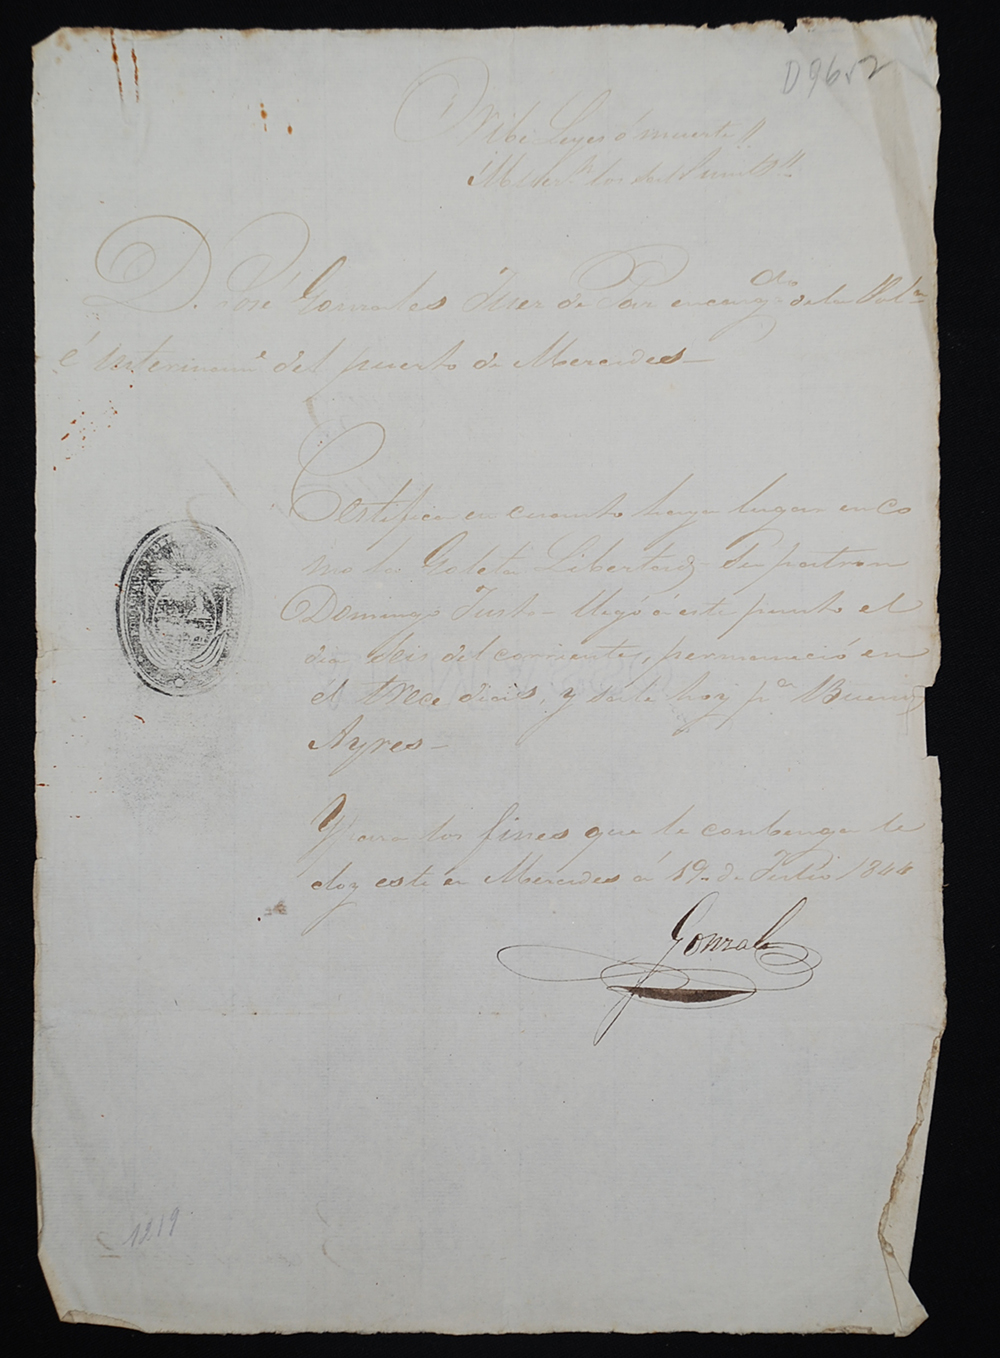 D 9652
Oribe Leyes ó muerte!!
Mueran los Salv. Unit.s!!
D. José Gonzales Juez de Paz encarg.do de la Pol.a
é interinam.e del puerto de Mercedes
Certifica en cuanto haya lugar en co
mo la Goleta Libertad, su patron
Domingo Justo llegó á este punto el
dia seis del corriente, permaneció en
el trece dias, y sale hoy p.a Buenos
Ayres
Y para los fines que le conbenga le
doy este en Mercedes á 19 de Julio 1844
Gonzales
1219